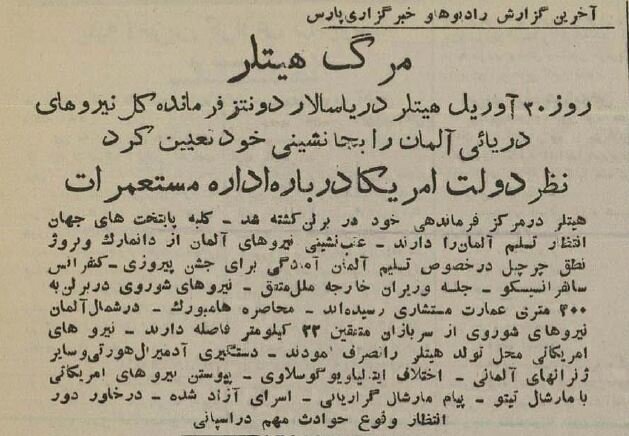 آخرین گزارش رادیوها و خبرگزاری پارس
مرگ هیتلر
روز ۳۰ آوریل هیتلر دریاسالار دونتز فرمانده کل نیروهای
دریائی آلمان را بجانشینی خود تعیین کرد
نظر دولت امریکا درباره اداره مستعمرات
هیتلر در مرکز فرماندهی خود در برلن کشته شد ـ کلیه پایتخت های جهان
انتظار تسلیم آلمان را دارند ـ عقب نشینی نیروهای آلمان از دانمارک و نروژ
نطق چرچیل در خصوص تسلیم آلمان آمادگی برای جشن پیروزی ـ کنفرانس
سانفرانسیسکو ـ جلسه وزیران خارجه ملل متفق ـ نیروهای شوروی در برلن به
۳۰۰ متری عمارت مستشاری رسیده‌اند ـ محاصره هامبورک ـ در شمال آلمان
نیروهای شوروی از سربازان متفقین ۳۲ کیلومتر فاصله دارند ـ نیرو های
امریکائی محل تولد هیتلر را تصرف نمودند ـ دستگیری آدمیرال هورتی و سایر
ژنرالهای آلمانی ـ اختلاف ایتالیا و یوگوسلاوی ـ پیوستن نیرو های امریکائی
با مارشال تیتو ـ پیام مارشال گرازیانی ـ اسرای آزاد شده ـ در خاور دور
انتظار وقوع حوادث مهم در اسپانی